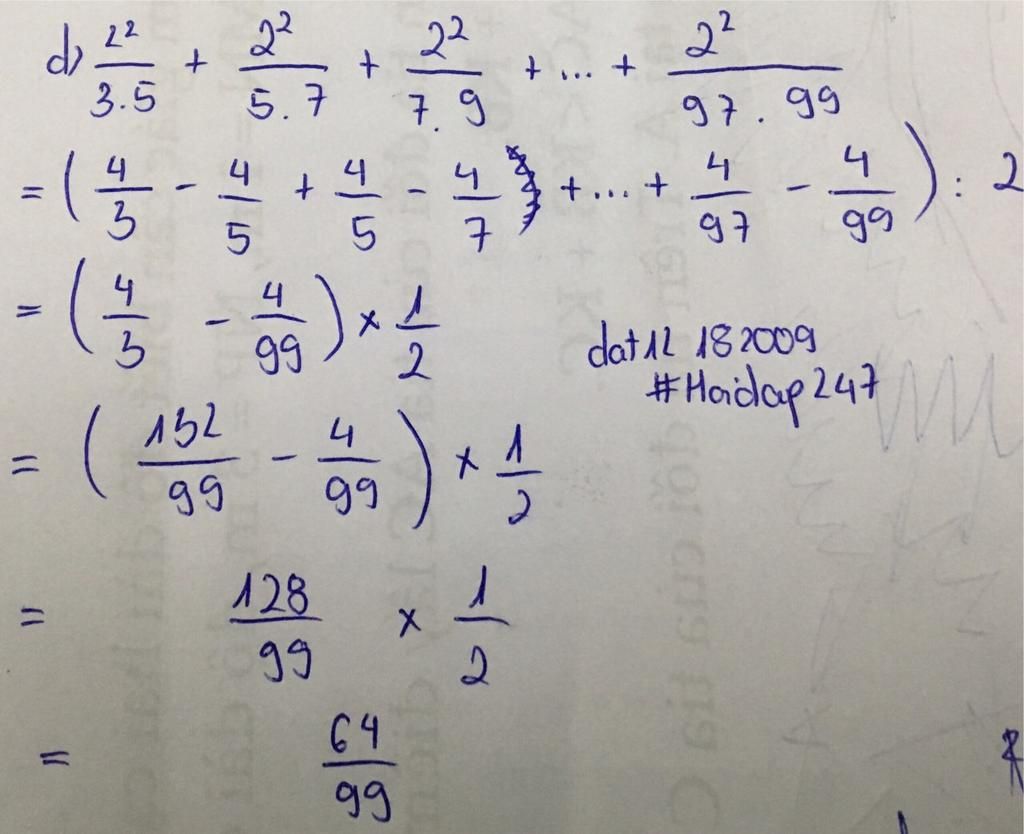 d) 2²/3.5 + 2²/5.7 + 2²/7.9 + ... + 2²/97.99
= (4/3 - 4/5 + 4/5 - 4/7 + ... + 4/97 - 4/99) : 2
= (4/3 - 4/99) × 1/2
dat12 182009
#Hoidap247
= (132/99 - 4/99) × 1/2
= 128/99 × 1/2
= 64/99